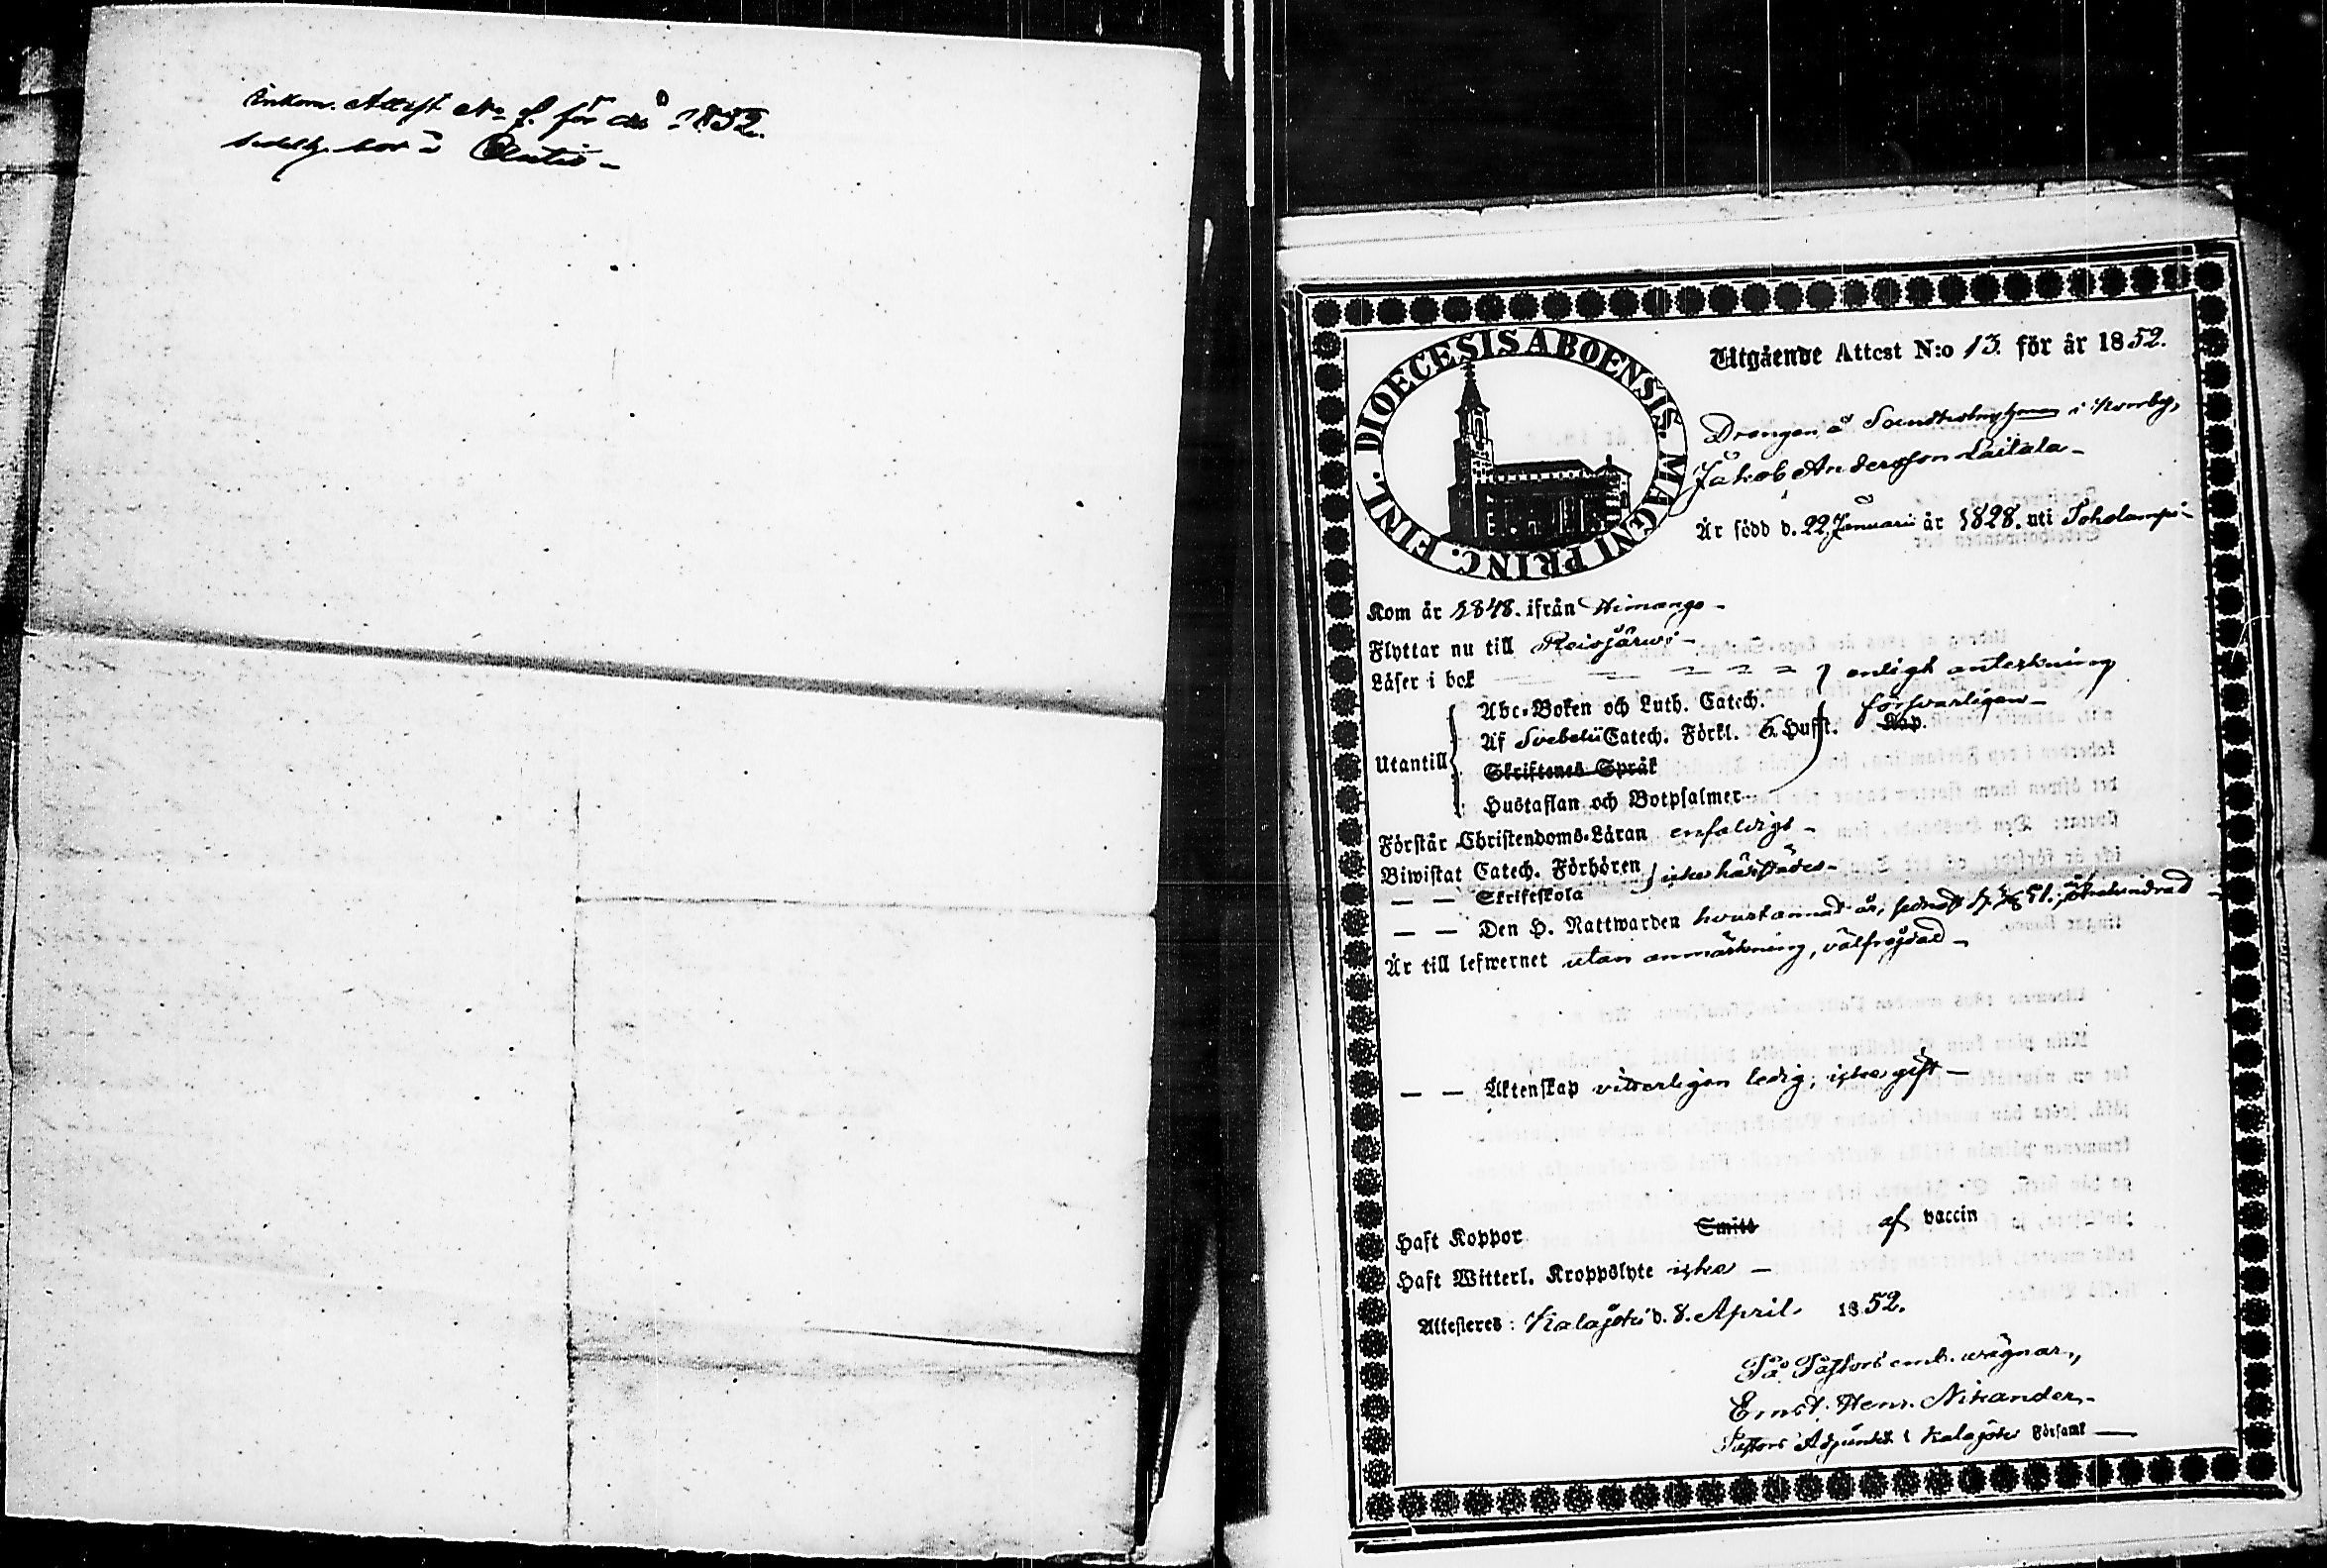 Inkom. Attest No 8. för år 1852.
bor å
DIOECESIS ABOENSIS. MAGNI PRINC. FINL.
Utgående Attest N:o 13. för år 1852.
Drengen å i
Jakob Andersson Lailala
Är född d. 22 Januarii år 1828. uti Toholampi
Kom år 1848. ifrån Himango
Flyttar nu till Reisjärwi
Läser i bok enligt anteckning
Abc-Boken och Luth. Catech. försvarligen
Af Svebelii Catech. Förkl. 6. Hufst. Kap.
Utantill
Skriftenes Språk
Hustaflan och Botpsalmer
Förstår Christendoms-Läran enfaldigt
Biwistat Catech. Förhören icke härstädes
— — Skriftskola
— — Den H. Nattwarden hvart annat år, sednast
Är till lefwernet utan anmärkning, välfrejdad
— — Äktenskap vitterligen ledig; icke gift
Haft Koppor Smitt af vaccin
Haft Witterl. Kroppslyte icke
Attesteres: Kalajoki d. 8. April 1852.
På Pastors emb. wägnar,
Ernst Henr. Nikander
Pastors Adjunkt i Kalajoki Församl